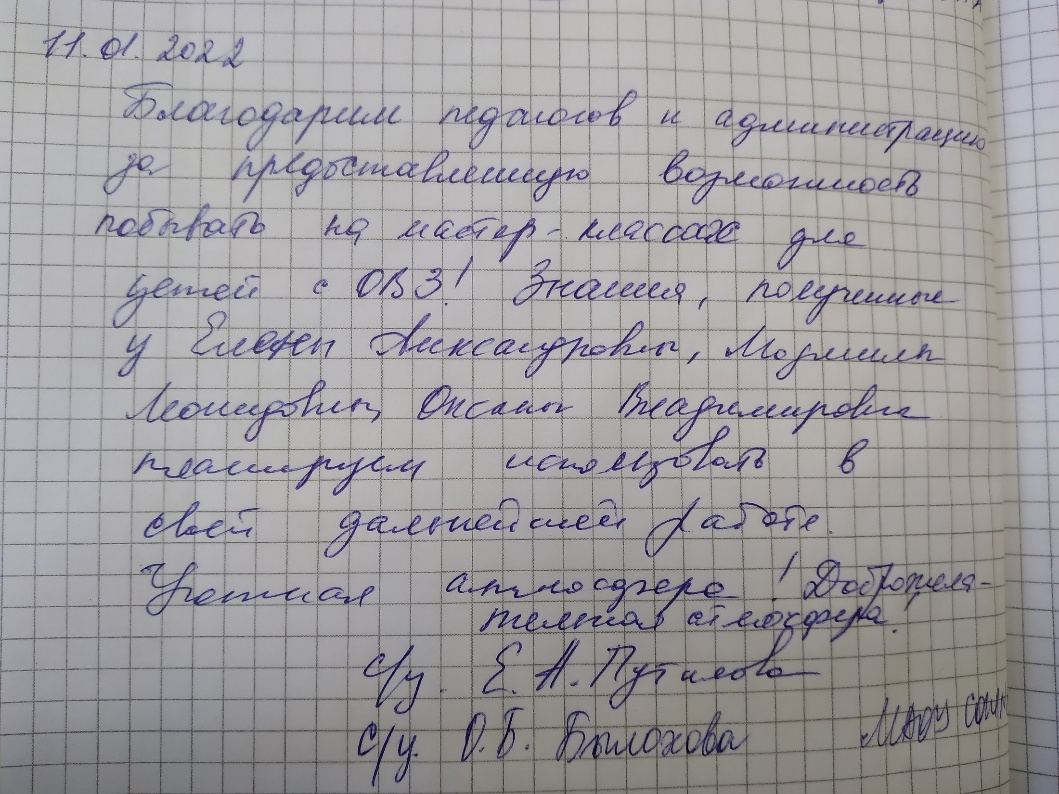 11.01.2022
Благодарим педагогов и администрацию
за предоставленную возможность
побывать на мастер-классах для
детей с ОВЗ! Знания, полученные
у Елены Александровны, Людмилы
Леонидовны, Оксаны Владимировны
планируем использовать в
своей дальнейшей работе.
Уютная атмосфера! Доброжела-
тельная атмосфера.
с/у. Е. А. Путилова
с/у. О.Б. Былохова
МАОУ СОШ